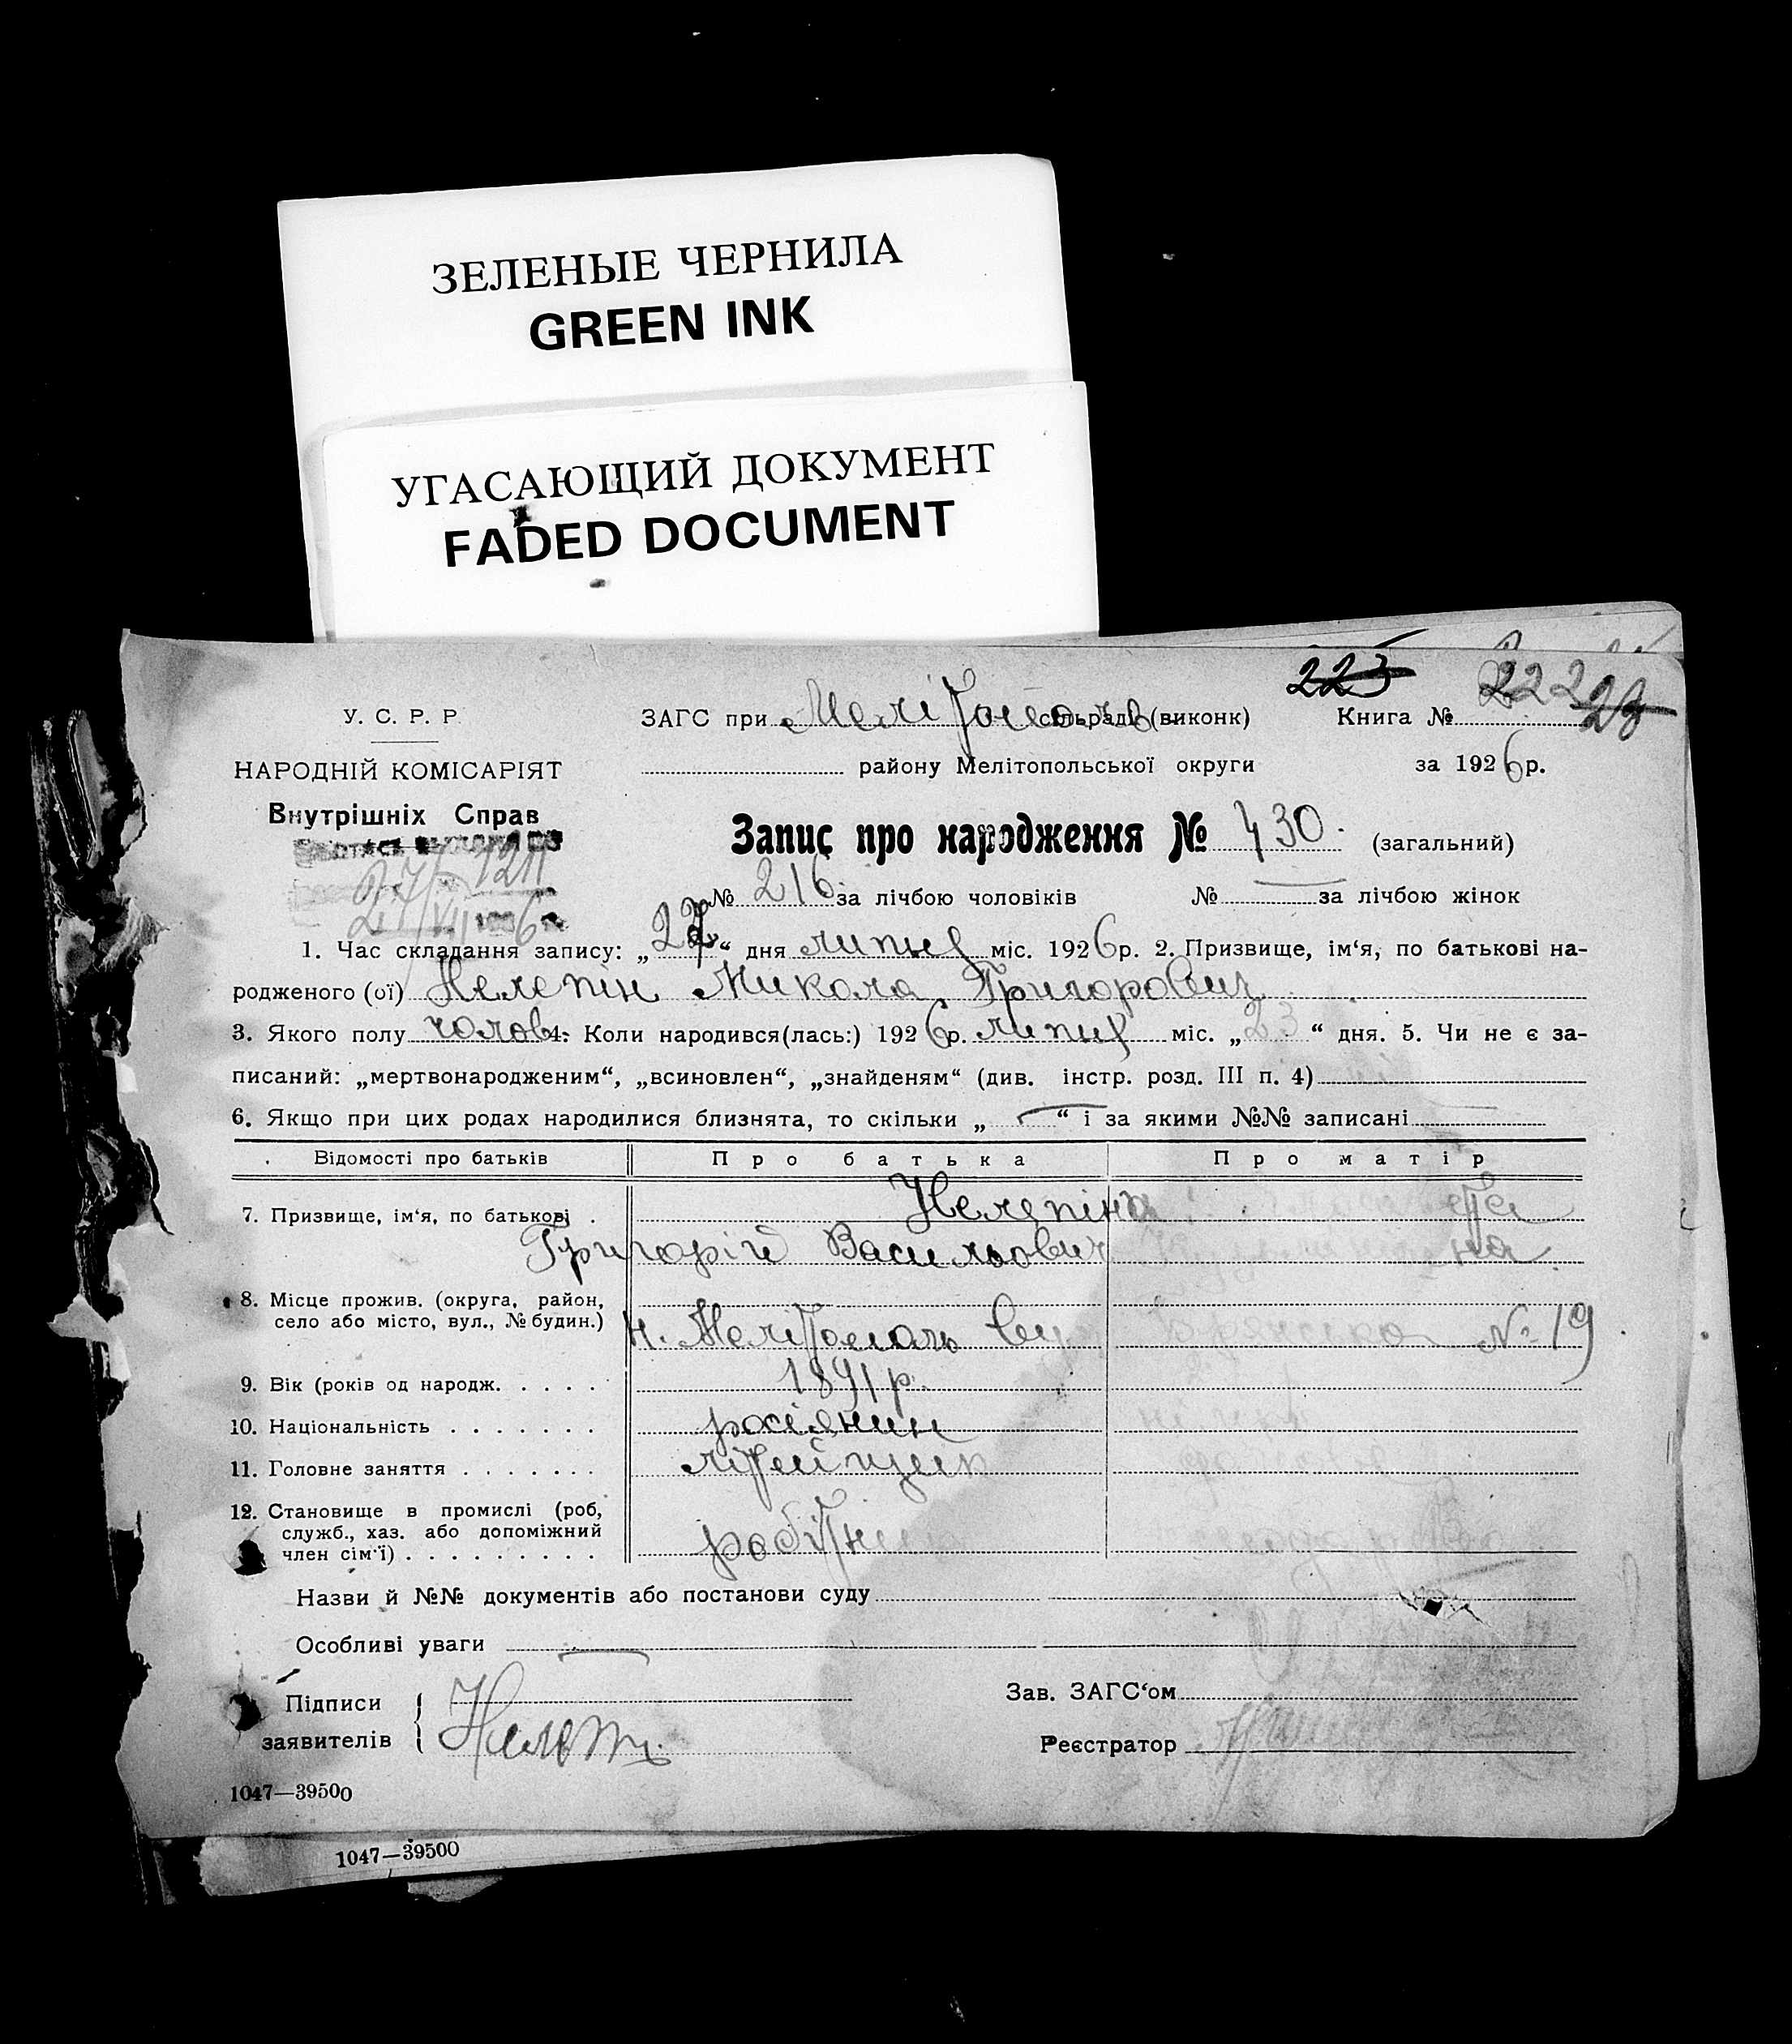 ЗЕЛЕНЫЕ ЧЕРНИЛА
GREEN INK
УГАСАЮЩИЙ ДОКУМЕНТ
FADED DOCUMENT
223 222
У. С. Р. Р.
ЗАГС при сільраді (виконк) Книга №
НАРОДНІЙ КОМІСАРІЯТ
району Мелітопольської округи за 1926 р.
Внутрішніх Справ
Запис про народження № 430. (загальний)
№ 216 за лічбою чоловіків № за лічбою жінок
1. Час складання запису: „27“ дня липня міс. 1926 р. 2. Призвище, ім‘я, по батькові на-
родженого (ої) Нелепін Микола Григорович
3. Якого полу чолов. 4. Коли народився(лась:) 1926 р. липня міс. „23“ дня. 5. Чи не є за-
писаний: „мертвонародженим“, „всиновлен“, „знайденям“ (див. інстр. розд. III п. 4)
6. Якщо при цих родах народилися близнята, то скільки „ “ і за якими №№ записані
Відомості про батьків Про батька Про матір
7. Призвище, ім‘я, по батькові Нелепіни Та
Григорій Васильович на
8. Місце прожив. (округа, район,
село або місто, вул., № будин.) м. Мелітополь вул № 19
9. Вік (років од народж. 1891 р.
10. Національність росіянин
11. Головне заняття літейщик
12. Становище в промислі (роб,
служб., хаз. або допоміжний
член сім‘ї) робітник
Назви й №№ документів або постанови суду
Особливі уваги
Підписи
заявителів
Зав. ЗАГС‘ом
Реєстратор
1047—39500
1047—39500